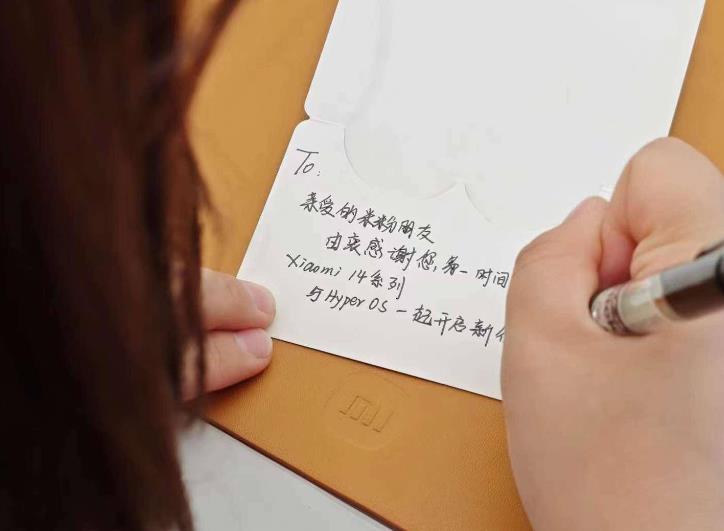 To:
亲爱的米粉朋友
由衷感谢您,第一时间
Xiaomi 14系列
与HyperOS一起开启新
MI